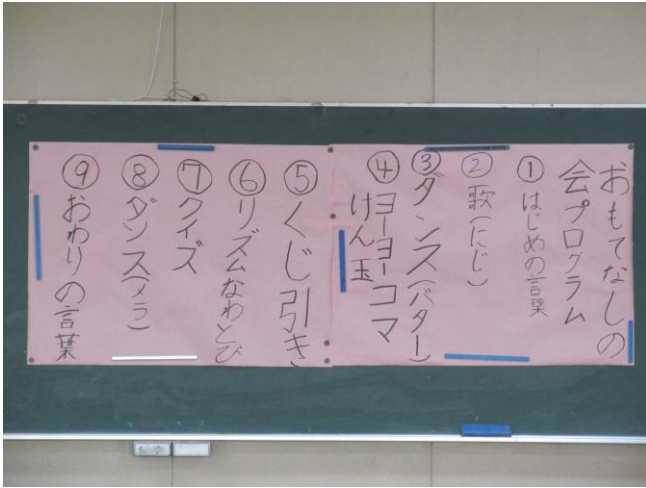 おもてなしの
会プログラム
①はじめの言葉
②歌(にじ)
③ダンス(バター)
④ヨーヨーコマ
けん玉
⑤くじ引き
⑥リズムなわとび
⑦クイズ
⑧ダンス(メラ)
⑨おわりの言葉